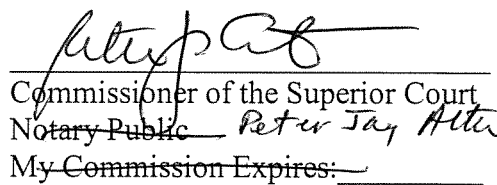 Commissioner of the Superior Court
Notary Public Peter Jay Alter
My Commission Expires: